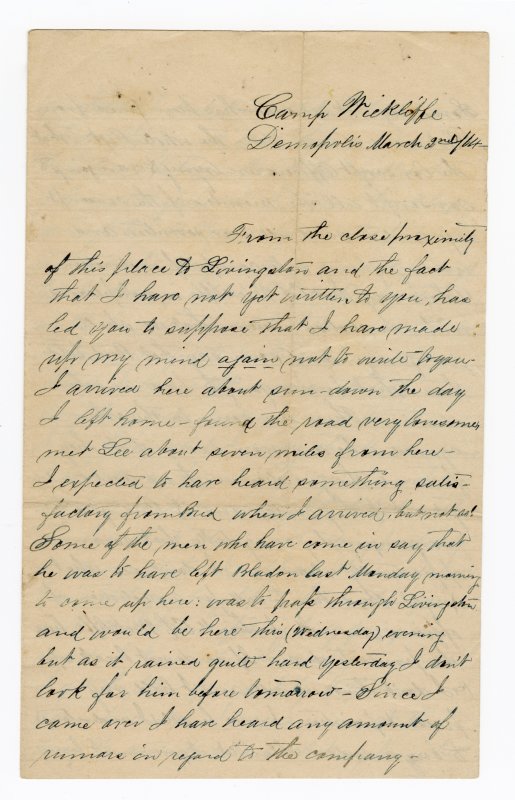 Camp Wickliffe
Demopolis March 2nd/64
From the close proximity
of this place to Livingston and the fact
that I have not yet written to you, has
led you to suppose that I have made
up my mind again not to write to you-
I arrived here about sun-down the day
I left home - found the road very lonesome,
met Lee about seven miles from here -
I expected to have heard something satis-
factory from Bud when I arrived, but not so!
Some of the men who have come in say that
he was to have left Bladon last Monday morning
to come up here: was to pass through Livingston
and would be here this (Wednesday) evening
but as it rained quite hard yesterday I don't
look for him before tomorrow - Since I
came over I have heard any amount of
rumors in regard to the company -